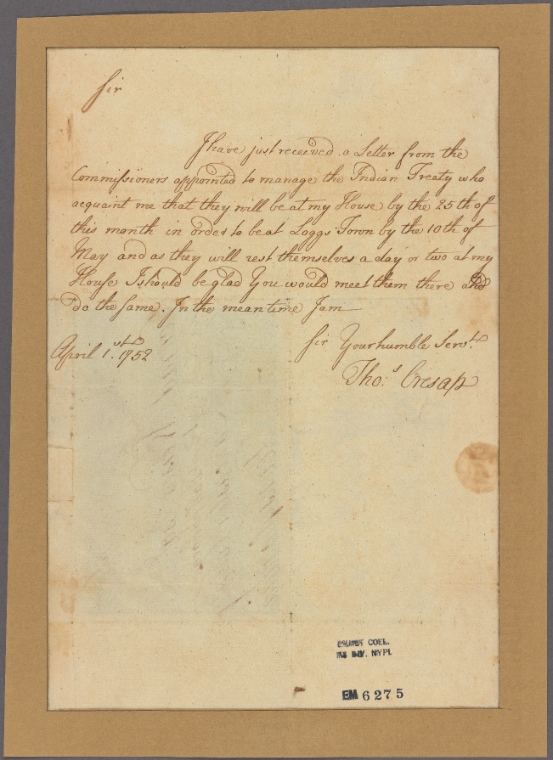 Sir
I have just received a Letter from the
Commissioners appointed to manage the Indian Treaty who
acquaint me that they will be at my House by the 25th of
this month in order to be at Loggs Town by the 10th of
May and as they will rest themselves a day or two at my
House I should be glad You would meet them there and
do the same. In the mean time I am
Sir Your humble Servt.
April 1.st 1752
Tho.s Cresap
EMMET COLL.
MS DIV. NYPL
EM 6275